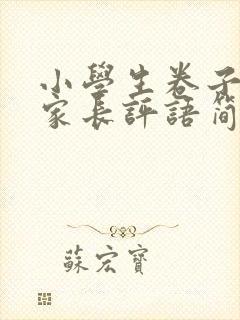 小學生卷子
家長評語簡
蘇宏寶